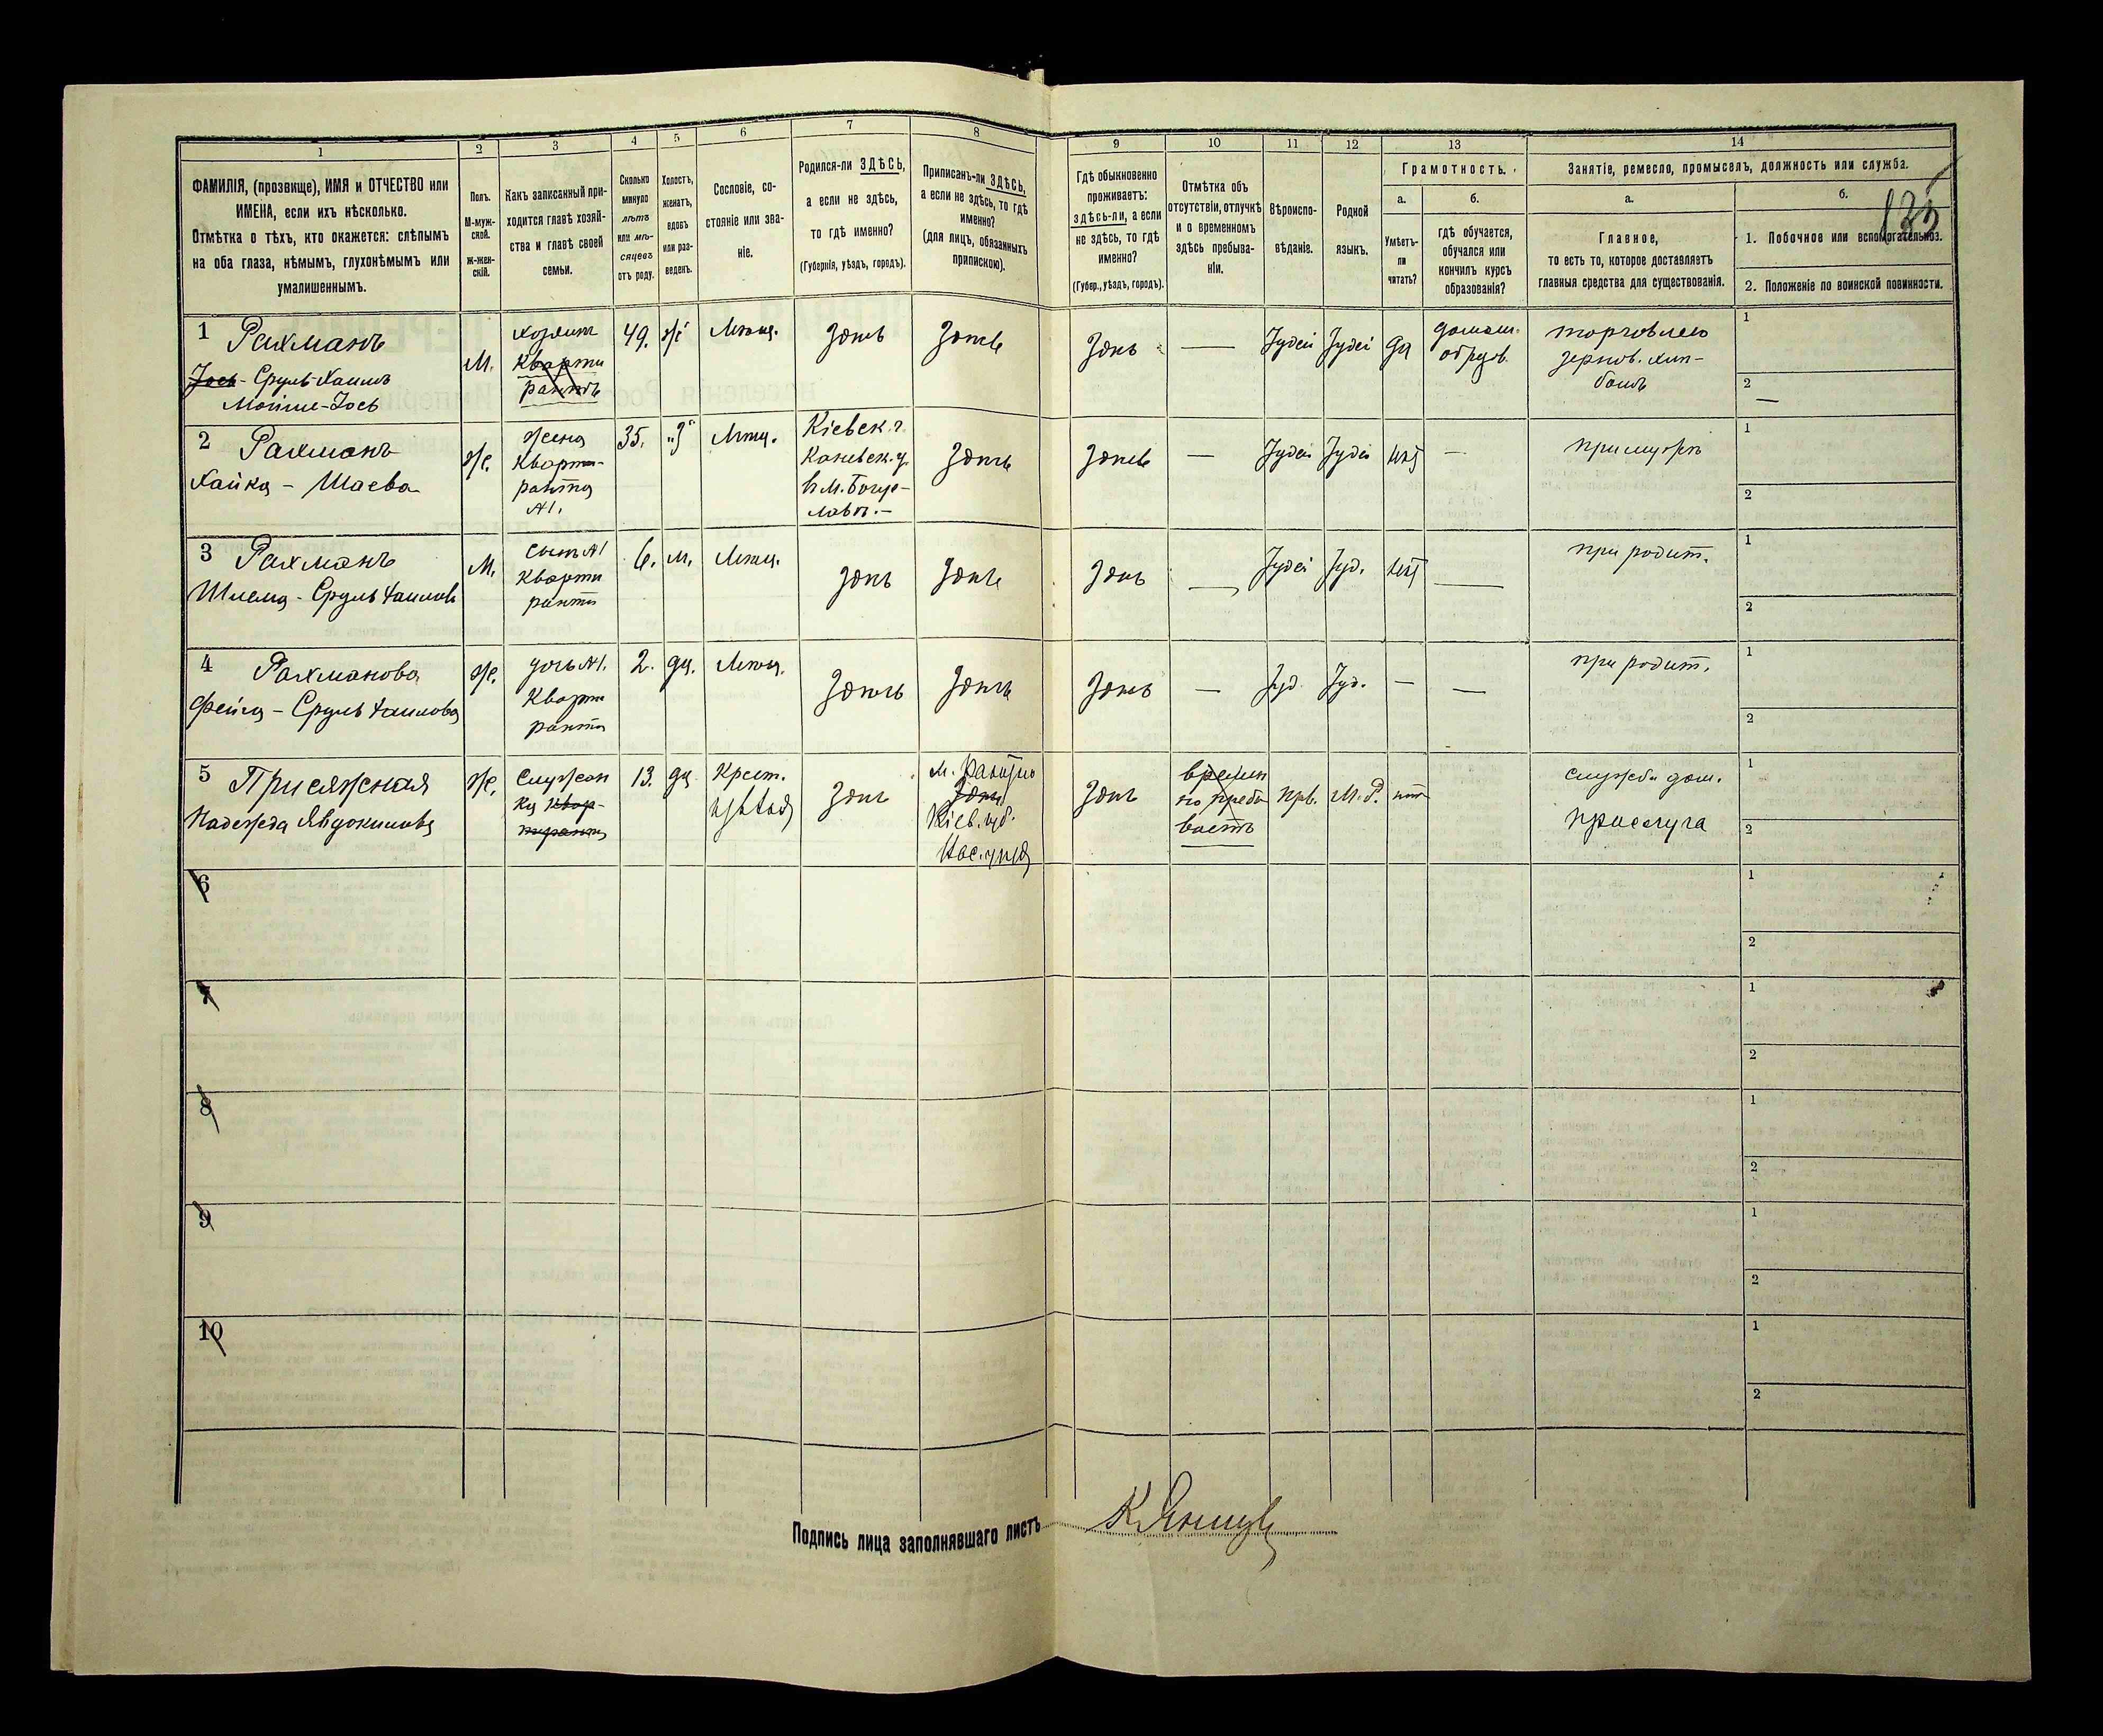 1
2
3
4
5
6
7
8
9
10
11
12
13
14
ФАМИЛІЯ, (прозвище), ИМЯ и ОТЧЕСТВО или
ИМЕНА, если ихъ нѣсколько.
Отмѣтка о тѣхъ, кто окажется: слѣпымъ
на оба глаза, нѣмымъ, глухонѣмымъ или
умалишеннымъ.
Полъ.
М-муж-
ской.
Ж-жен-
скій.
Какъ записанный при-
ходится главѣ хозяй-
ства и главѣ своей
семьи.
Сколько
минуло
лѣтъ
или мѣ-
сяцевъ
отъ роду.
Холостъ,
женатъ,
вдовъ
или раз-
веденъ.
Сословіе, со-
стояніе или зва-
ніе.
Родился-ли ЗДѢСЬ,
а если не здѣсь,
то гдѣ именно?
(Губернія, уѣздъ, городъ).
Приписанъ-ли ЗДѢСЬ,
а если не здѣсь, то гдѣ
именно?
(для лицъ, обязанныхъ
припискою).
Гдѣ обыкновенно
проживаетъ:
здѣсь-ли, а если
не здѣсь, то гдѣ
именно?
(Губер., уѣздъ, городъ).
Отмѣтка объ
отсутствіи, отлучкѣ
и о временномъ
здѣсь пребыва-
ніи.
Вѣроиспо-
вѣданіе.
Родной
языкъ.
Грамотность.
а.
Умѣетъ-
ли
читать?
б.
гдѣ обучается,
обучался или
кончилъ курсъ
образованія?
Занятіе, ремесло, промыселъ, должность или служба.
а.
Главное,
то есть то, которое доставляетъ
главныя средства для существованія.
б.
1. Побочное или вспомогательное.
2. Положеніе по воинской повинности.
1 Рахманъ
Іось - Сруль-Хаимъ
Мойше-Іось
М.
хозяинъ
кварти
рантъ
49.
ж
Мѣщ.
Здѣсь
Здѣсь
Здѣсь
—
Іудей
Іудей
да
домаш.
образов.
торговлею
зернов. хлѣ-
бомъ
1
2
—
2 Рахманъ
Хайка - Шаева
Ж.
жена
кварти-
ранта
№1.
35.
"З"
Мѣщ.
Кіевск. г.
Каневск. у.
в м. Богус-
лавѣ.-
Здѣсь
Здѣсь
—
Іудей
Іудей
нѣтъ
—
при мужѣ
1
2
3 Рахманъ
Шлема - Сруль Хаимовъ
М.
сынъ №1
кварти
ранта
6.
М.
Мѣщ.
Здѣсь
Здѣсь
Здѣсь
—
Іудей
Іуд.
нѣтъ
—
при родит.
1
2
4 Рахманова
Фейга - Сруль Хаимова
Ж.
дочь №1.
кварти
ранта
2.
дѣ.
Мѣщ.
Здѣсь
Здѣсь
Здѣсь
—
Іуд.
Іуд.
—
—
при родит.
1
2
5 Присяжная
Надежда Явдокимова
Ж.
служан
ка квар-
тиранта
13.
дѣ
Крест.
Здѣсь
Здѣсь
Кіев. губ.
Здѣсь
времен
но пребы
ваетъ
прв.
М.Р.
нѣтъ
прислуга
1
2
6
1
2
7
1
2
8
1
2
9
1
2
10
1
2
Подпись лица заполнявшаго листъ